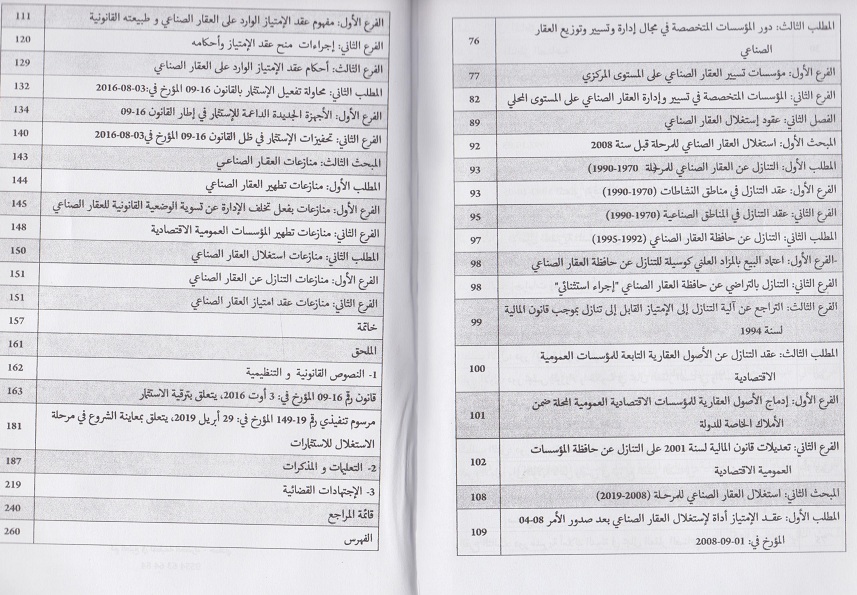 المطلب الثالث: دور المؤسسات المتخصصة في مجال إدارة وتسيير وتوزيع العقار
الصناعي 76
الفرع الأول: مؤسسات تسيير العقار الصناعي على المستوى المركزي 77
الفرع الثاني: المؤسسات المتخصصة في تسيير وإدارة العقار الصناعي على المستوى المحلي 82
الفصل الثاني: عقود إستغلال العقار الصناعي 89
المبحث الأول: استغلال العقار الصناعي للمرحلة قبل سنة 2008 92
المطلب الأول: التنازل عن العقار الصناعي للمرحلة (1970-1990) 93
الفرع الأول: عقد التنازل في مناطق النشاطات (1970-1990) 93
الفرع الثاني: عقد التنازل في المناطق الصناعية (1970-1990) 95
المطلب الثاني: التنازل عن حافظة العقار الصناعي (1992-1995) 97
-الفرع الأول: اعتماد البيع بالمزاد العلني كوسيلة للتنازل عن حافظة العقار الصناعي 98
الفرع الثاني: التنازل بالتراضي عن حافظة العقار الصناعي "إجراء استثنائي" 98
الفرع الثالث: التراجع عن آلية التنازل إلى الإمتياز القابل إلى تنازل بموجب قانون المالية
لسنة 1994 99
المطلب الثالث: عقد التنازل عن الأصول العقارية التابعة للمؤسسات العمومية
الاقتصادية 100
الفرع الأول: إدماج الأصول العقارية للمؤسسات الاقتصادية العمومية المحلة ضمن
الأملاك الخاصة للدولة 101
الفرع الثاني: تعديلات قانون المالية لسنة 2001 على التنازل عن حافظة المؤسسات
العمومية الاقتصادية 102
المبحث الثاني: استغلال العقار الصناعي للمرحلة (2008-2019) 108
المطلب الأول: عقد الإمتياز أداة لإستغلال العقار الصناعي بعد صدور الأمر 08-04
المؤرخ في: 01-09-2008 109
الفرع الأول: مفهوم عقد الإمتياز الوارد على العقار الصناعي و طبيعته القانونية 111
الفرع الثاني: إجراءات منح عقد الإمتياز وأحكامه 120
الفرع الثالث: أحكام عقد الإمتياز الوارد على العقار الصناعي 129
المطلب الثاني: محاولة تفعيل الإستثمار بالقانون 16-09 المؤرخ في:03-08-2016 132
الفرع الأول: الأجهزة الجديدة الداعمة للإستثمار في إطار القانون 16-09 134
الفرع الثاني: تحفيزات الإستثمار في ظل القانون 16-09 المؤرخ في:03-08-2016 140
المبحث الثالث: منازعات العقار الصناعي 143
المطلب الأول: منازعات تطهير العقار الصناعي 144
الفرع الأول: منازعات بفعل تخلف الإدارة عن تسوية الوضعية القانونية للعقار الصناعي 145
الفرع الثاني: منازعات تطهير المؤسسات العمومية الاقتصادية 148
المطلب الثاني: منازعات استغلال العقار الصناعي 150
الفرع الأول: منازعات التنازل عن العقار الصناعي 151
الفرع الثاني: منازعات عقد امتياز العقار الصناعي 151
خاتمة 157
الملحق 161
1- النصوص القانونية و التنظيمية 162
قانون رقم 16-09 المؤرخ في: 3 أوت 2016، يتعلق بترقية الاستثمار 163
مرسوم تنفيذي رقم 19-149 المؤرخ في: 29 أبريل 2019، يتعلق بمعاينة الشروع في مرحلة
الاستغلال للاستثمارات 181
2- التعليمات و المذكرات 187
3- الإجتهادات القضائية 219
قائمة المراجع 240
الفهرس 260